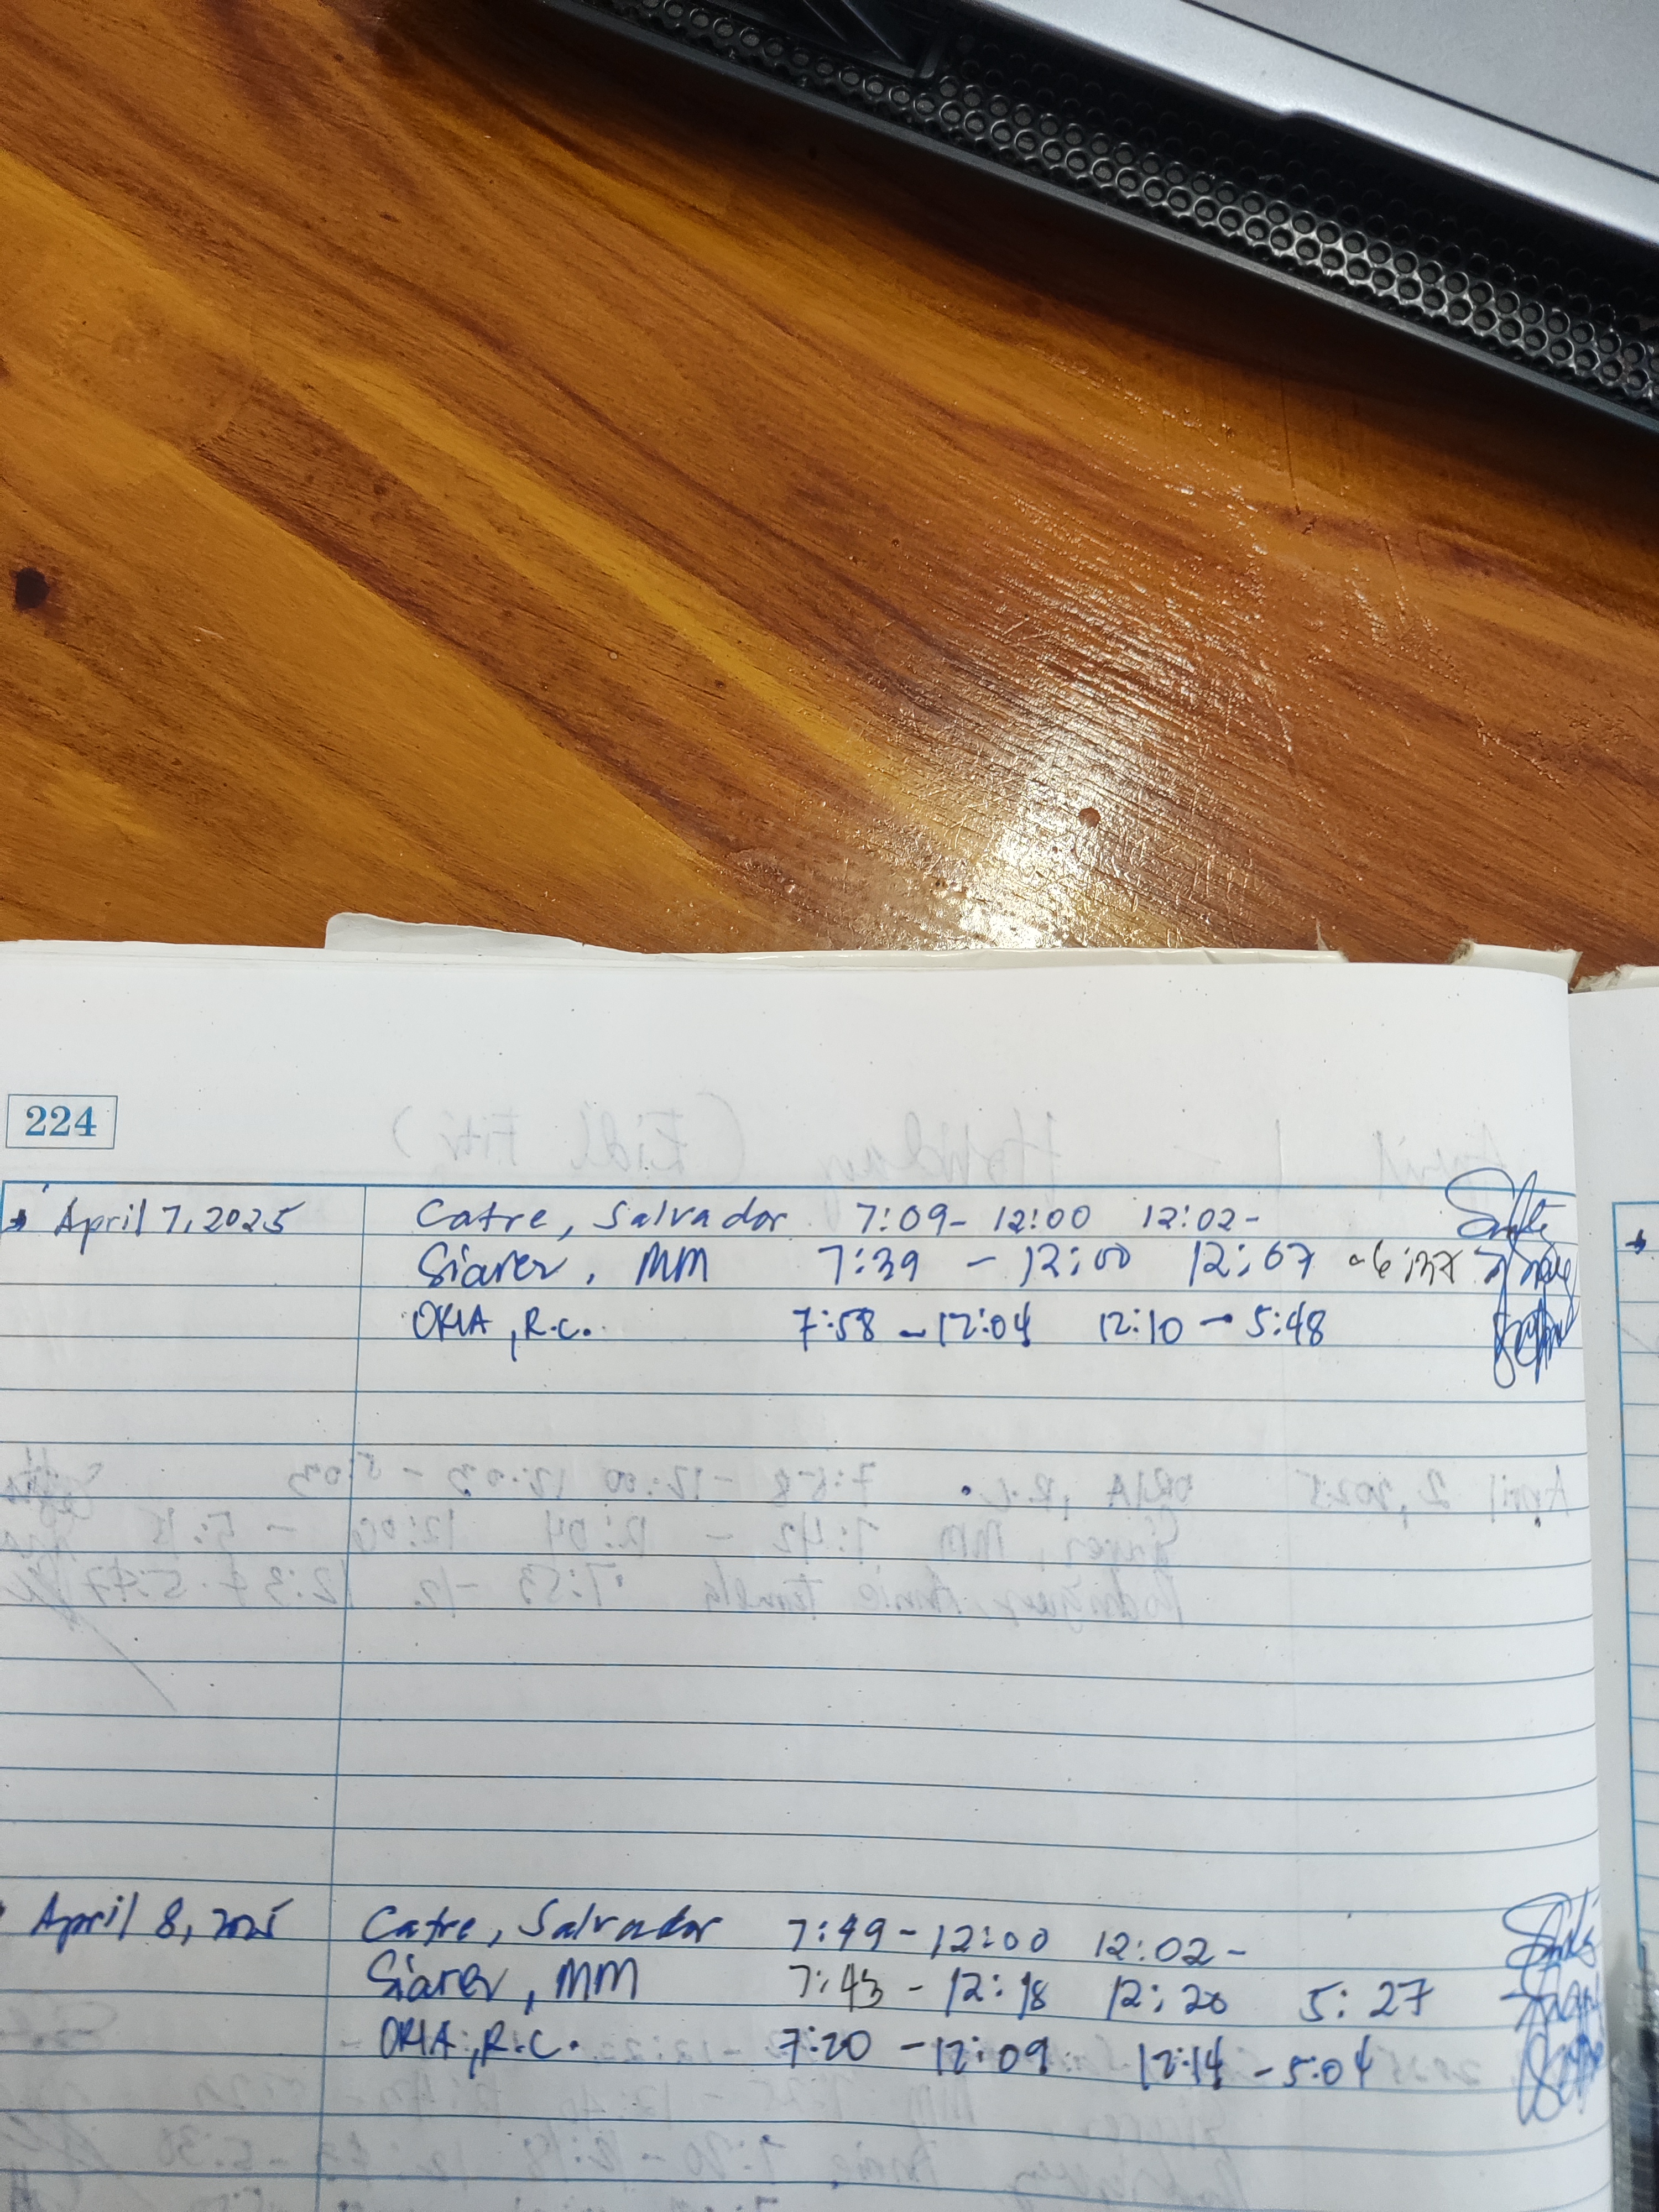 224
April 7, 2025 Catre, Salvador 7:09- 12:00 12:02-
Siarez, MM 7:39 - 12:00 12:07
ORIA, R.C. 7:58 - 12:04 12:10 - 5:48
April 8, 2025 Catre, Salvador 7:49 - 12:00 12:02 -
Siarez, MM 7:43 - 12:18 12:20 5:27
ORIA, R.C. 7:20 - 12:09 12:14 - 5:04